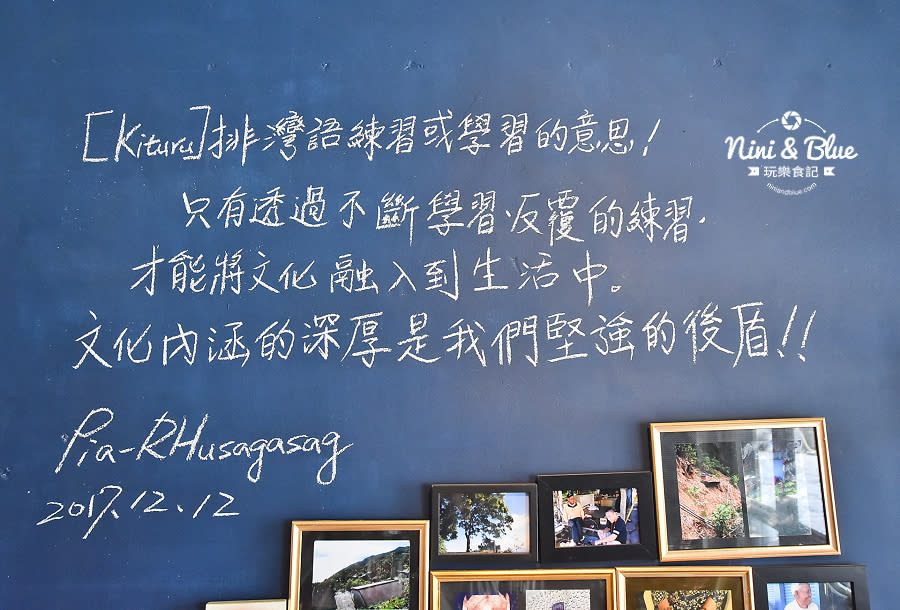 [Kituru]排灣語練習或學習的意思!
只有透過不斷學習反覆的練習.
才能將文化融入到生活中。
文化內涵的深厚是我們堅強的後盾!!
Pia-RHusagasag
2017.12.12
Nini & Blue
玩樂食記
niniandblue.com